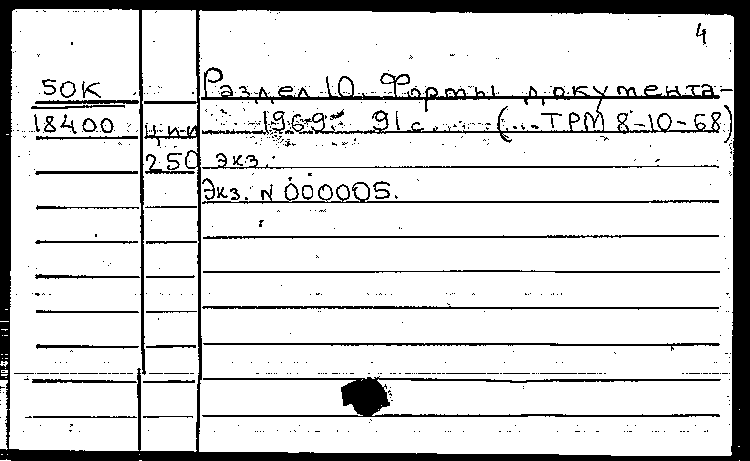 4
50К Раздел 10. Формы документа-
18400 ции 1969. 91 с. (...ТРМ 8-10-68)
250 экз.
Экз. N 000005.